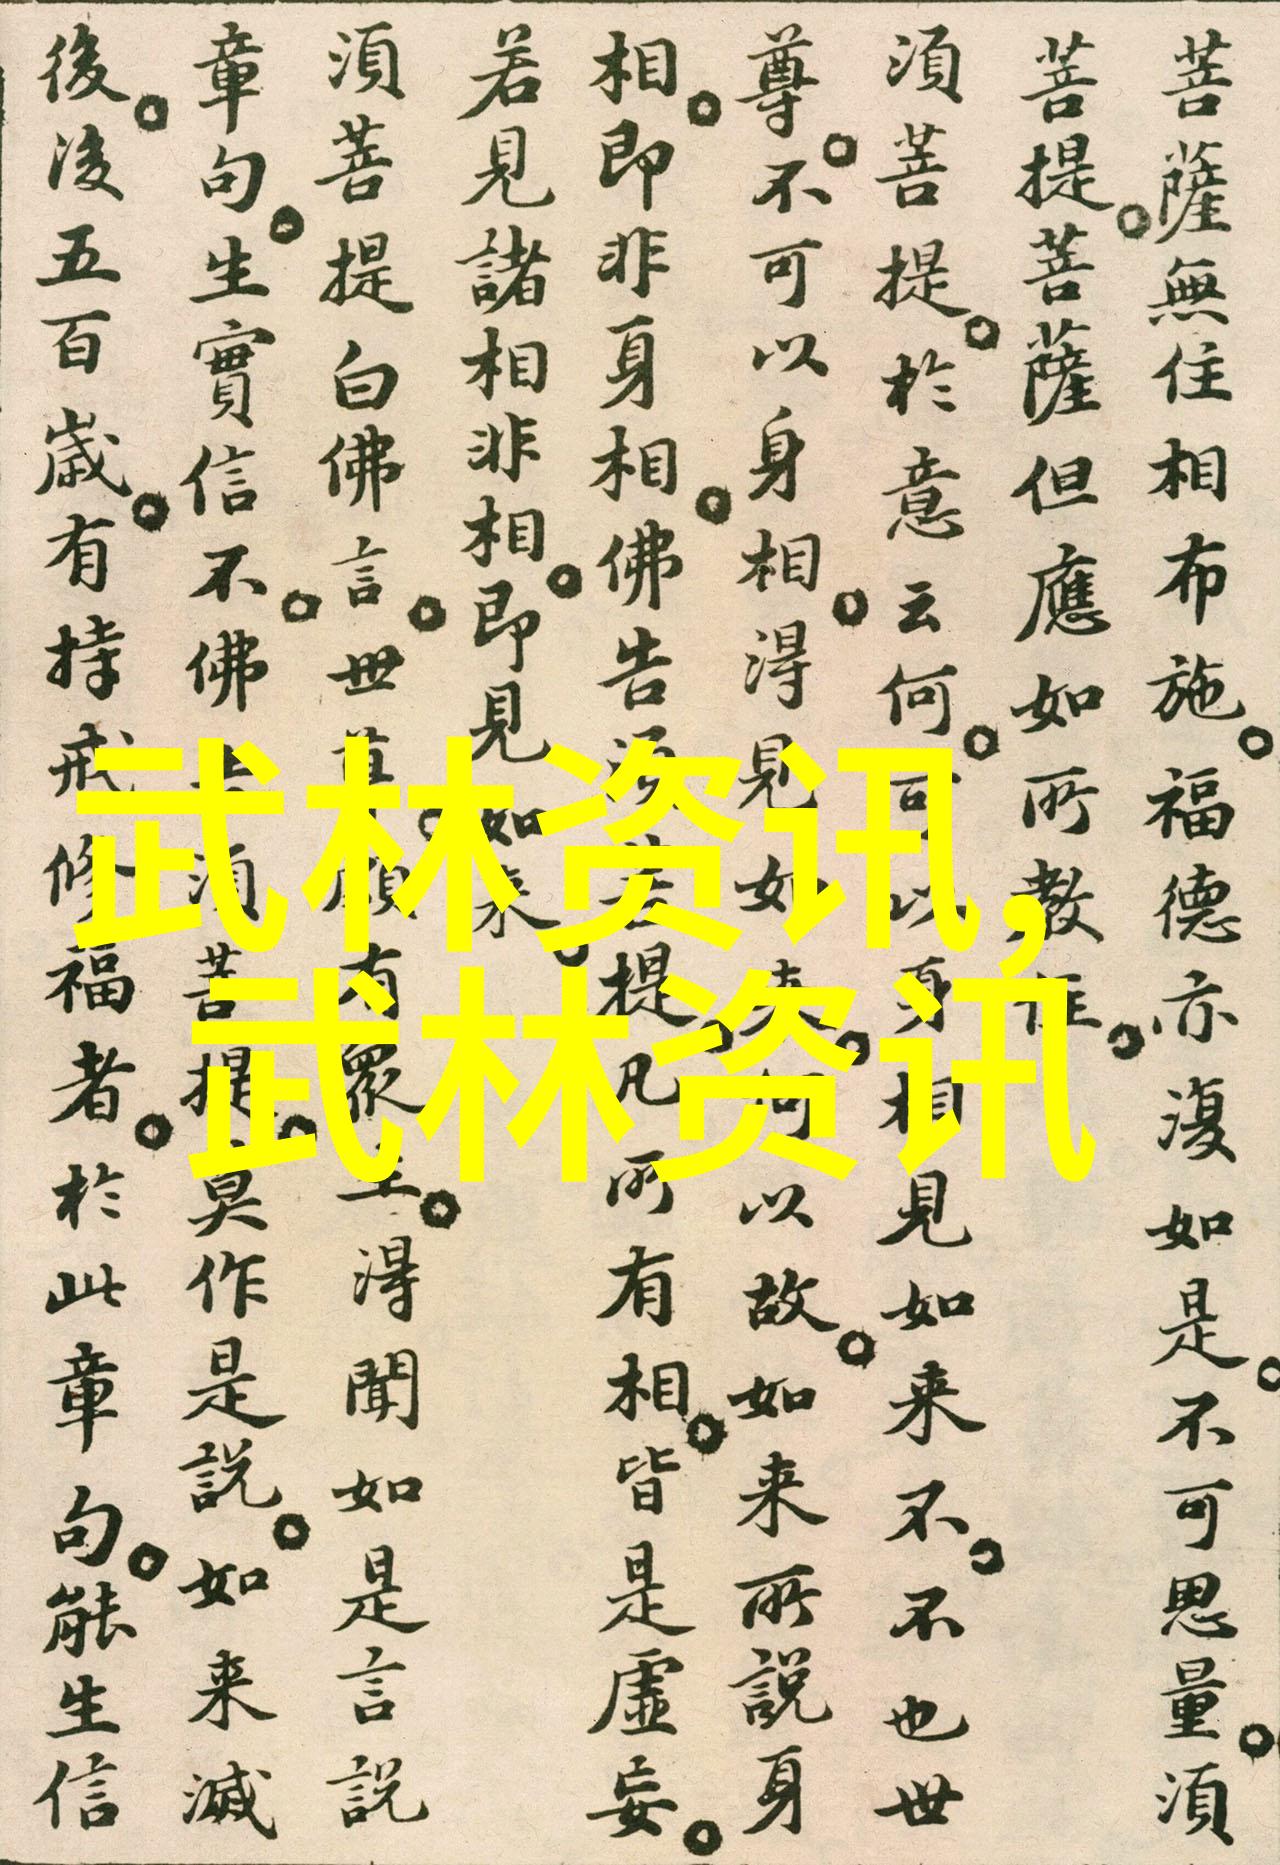 菩薩無住相布施福德亦復如是不可思量須
菩提菩薩但應如所教住
須菩提於意云何可以身相見如来不不也世
尊不可以身相得見如来何以故如来所說身
相即非身相佛告須菩提凡所有相皆是虛妄
若見諸相非相即見如来
須菩提白佛言世尊頗有眾生得聞如是言說
章句生實信不佛告須菩提莫作是說如来滅
後後五百歲有持戒修福者於此章句能生信
武林资讯,
武林资讯